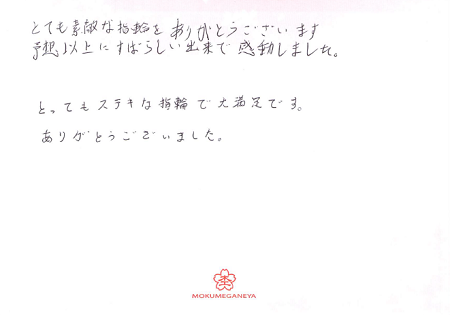 とても素敵な指輪をありがとうございます
予想以上にすばらしい出来で感動しました。
とってもステキな指輪で大満足です。
ありがとうございました。
MOKUMEGANEYA